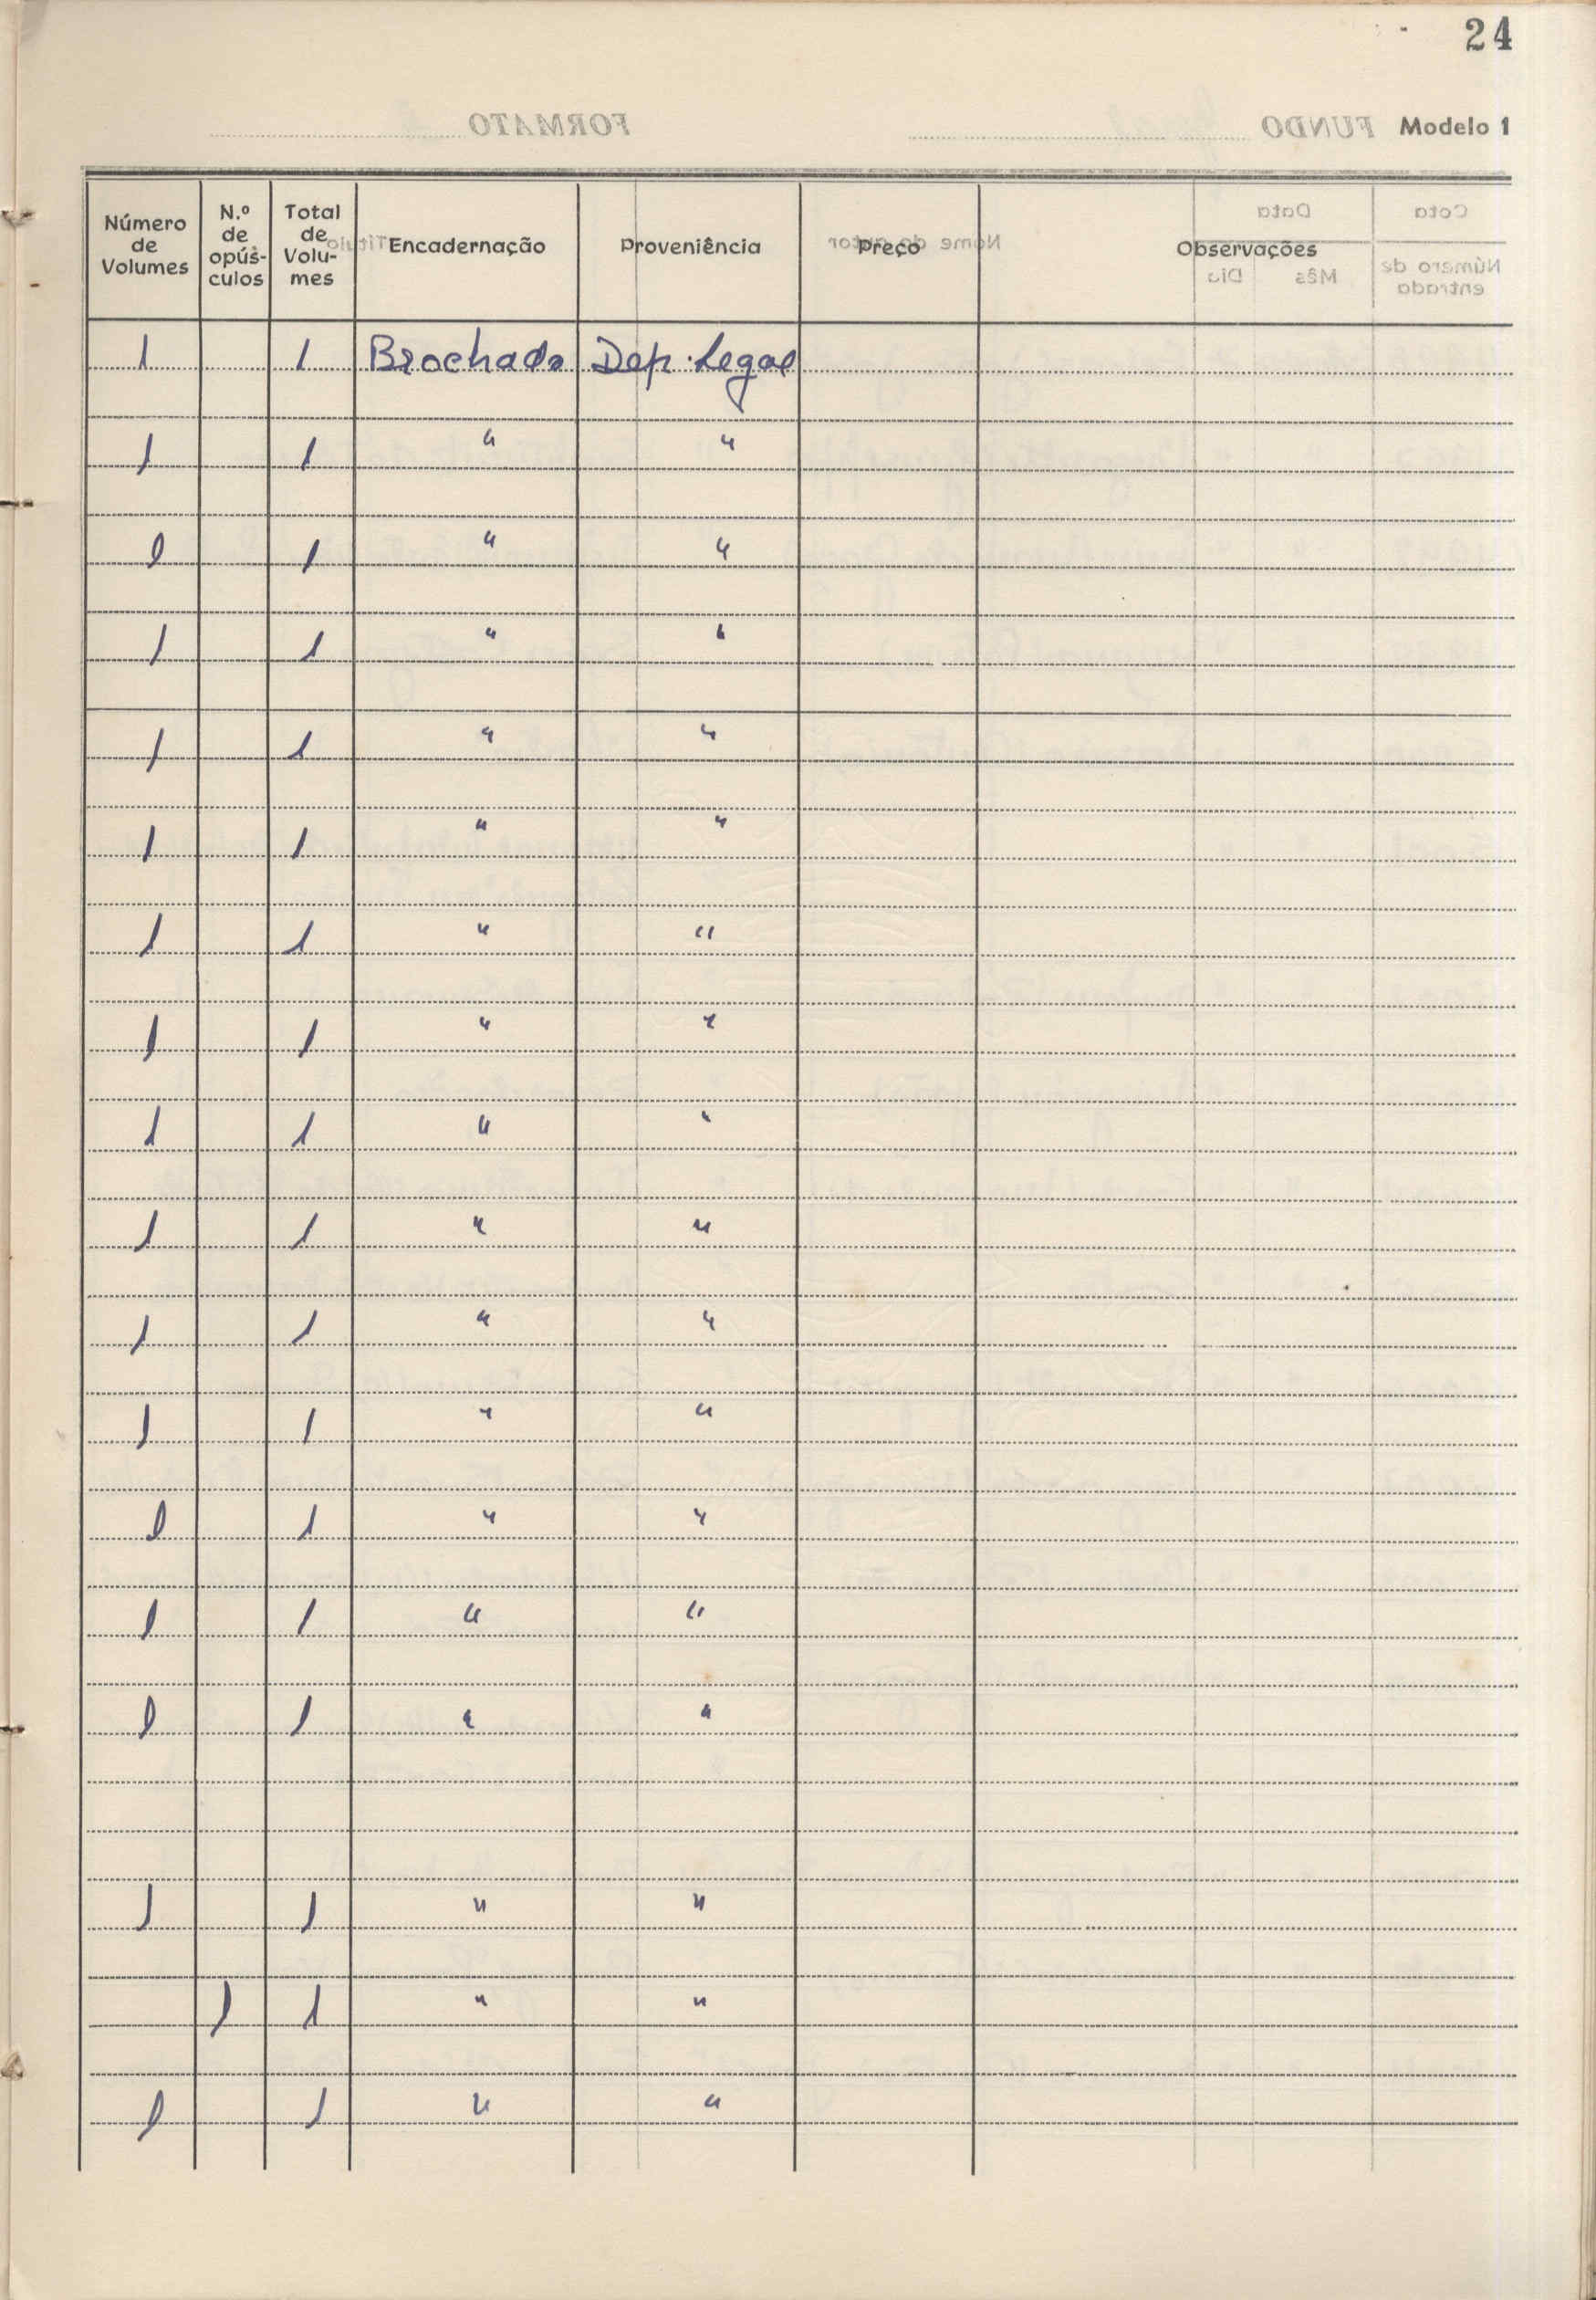 24
FORMATO FUNDO Modelo 1
Número de Volumes N.º de opús-culos Total de Volu-mes Encadernação Proveniência Preço Observações
1 1 Brochado Dep. Legal
1 1 " "
1 1 " "
1 1 " "
1 1 " "
1 1 " "
1 1 " "
1 1 " "
1 1 " "
1 1 " "
1 1 " "
1 1 " "
1 1 " "
1 1 " "
1 1 " "
1 1 " "
1 1 " "
1 1 " "